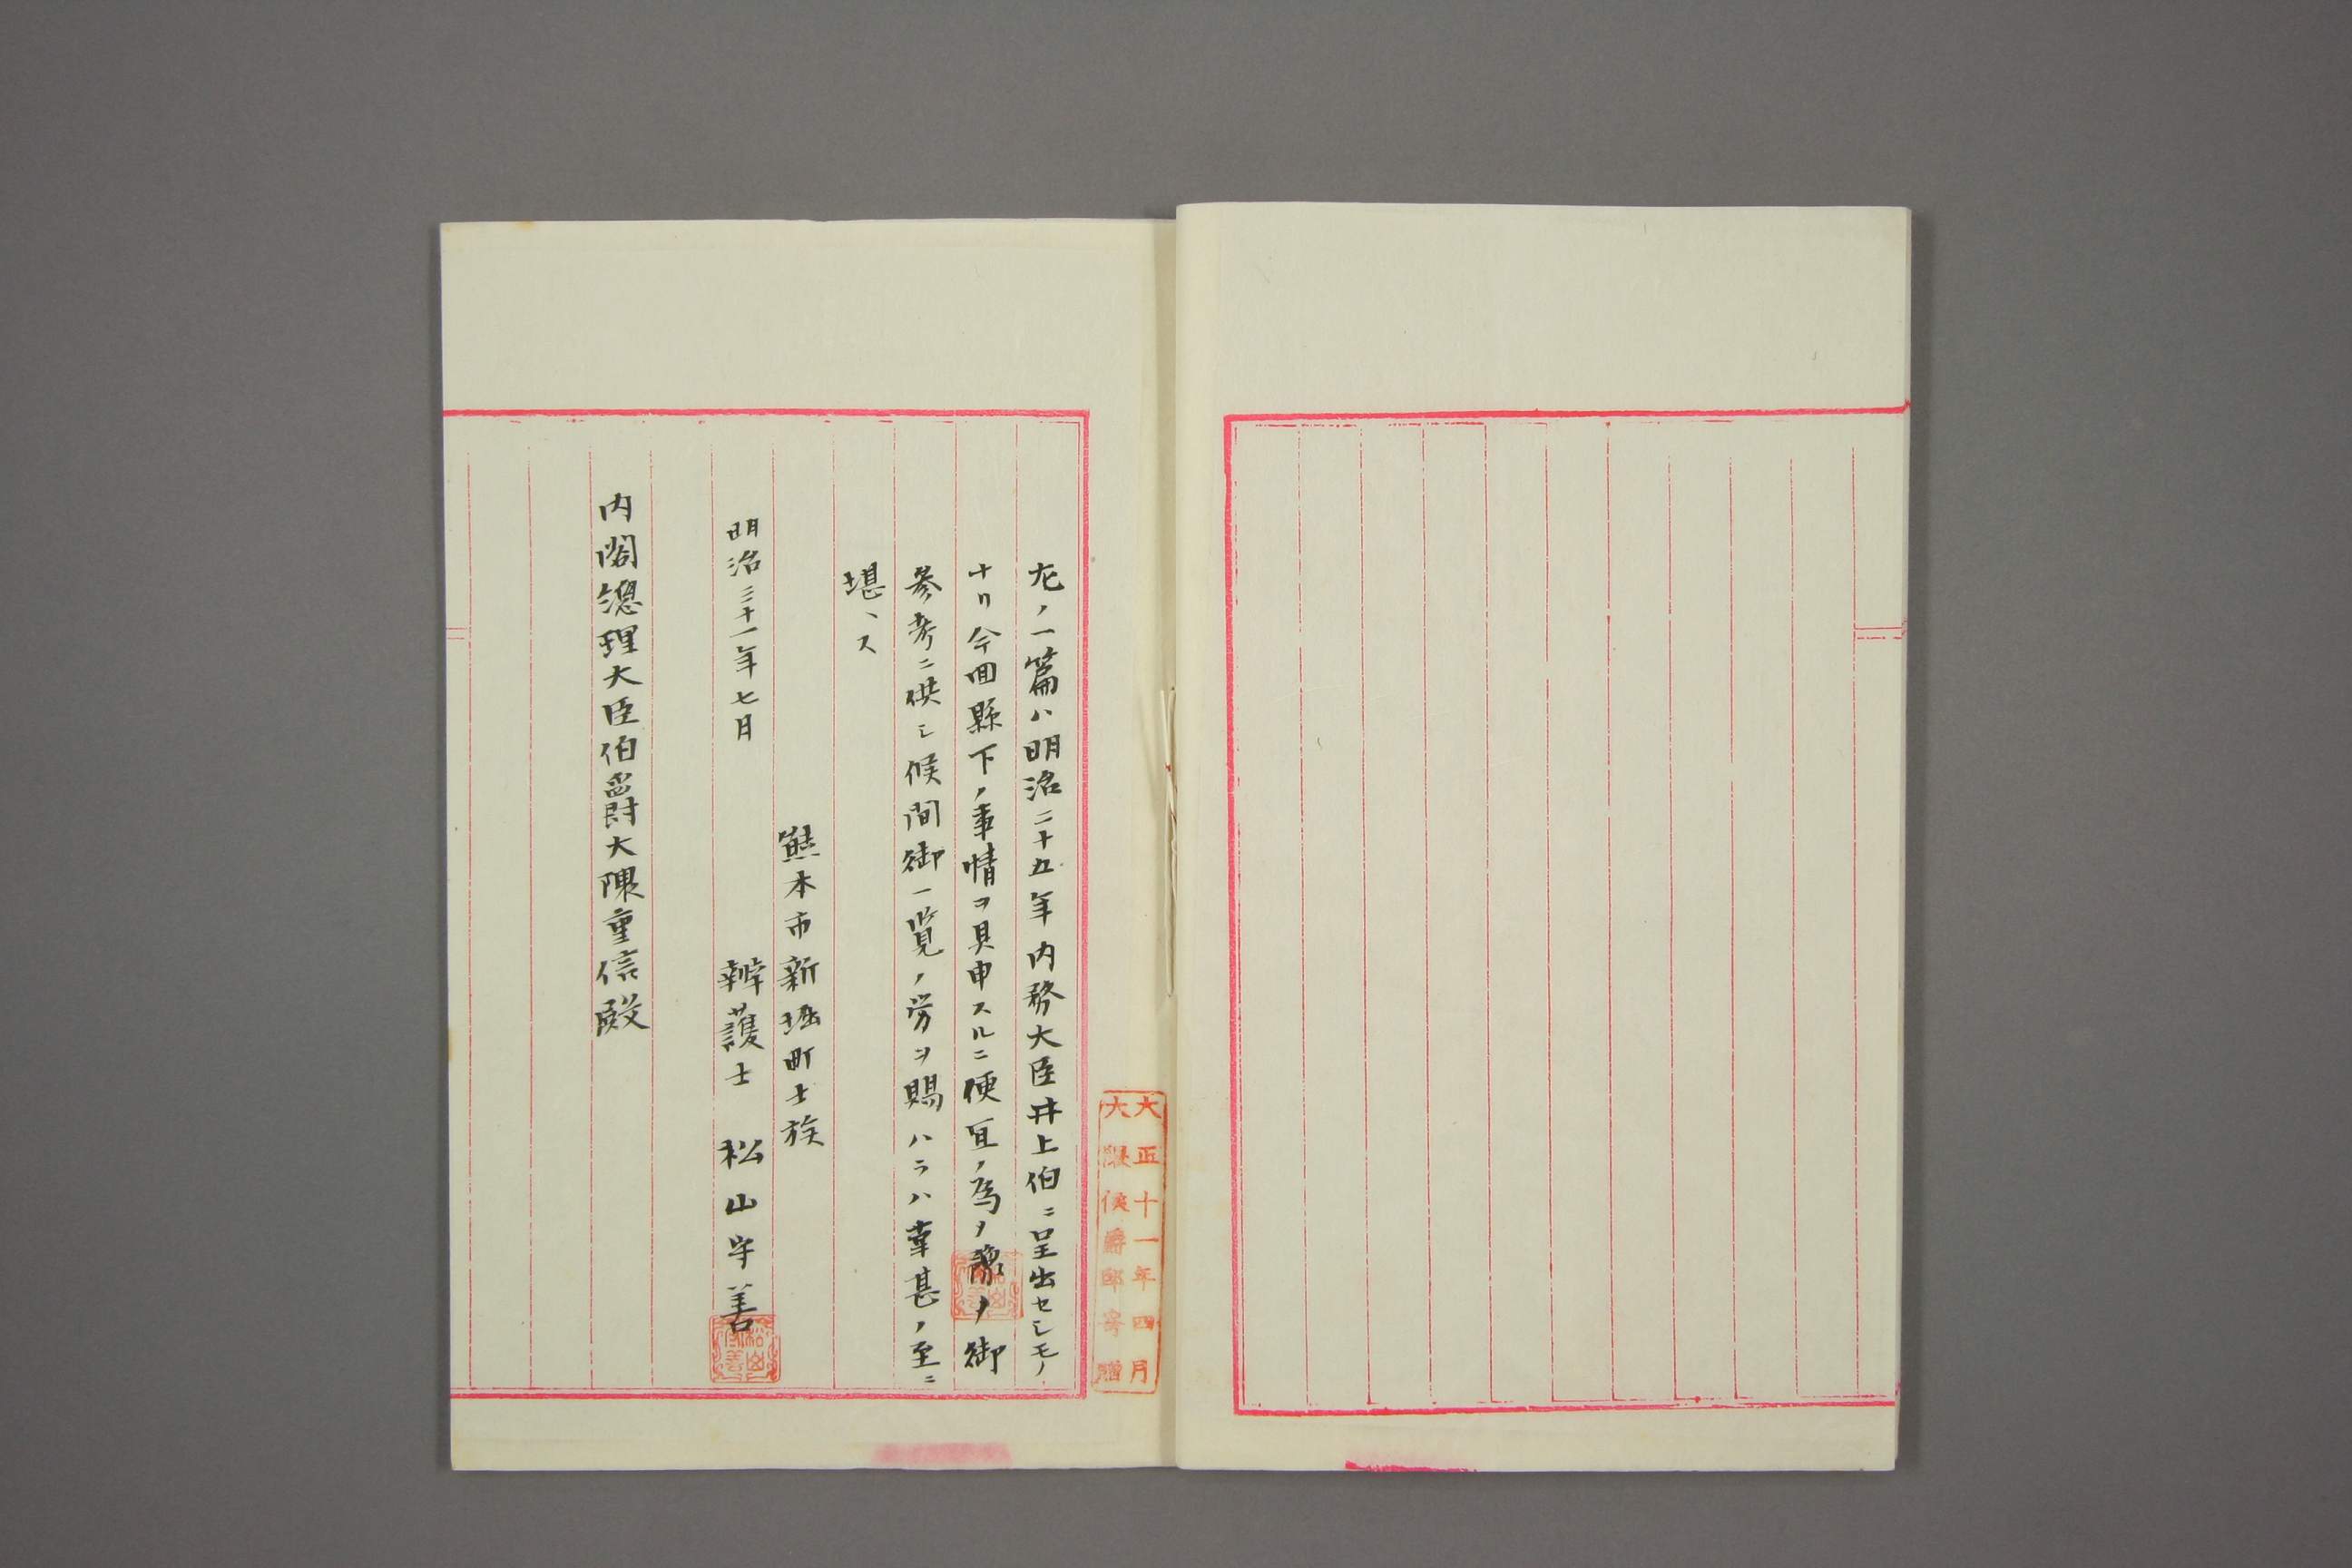 左ノ一篇ハ明治二十五年内務大臣井上伯ニ呈出セシモノ
ナリ今回縣下ノ事情ヲ具申スルニ便宜ノ為メ謄メ御
参考ニ供シ候間御一覧ノ労ヲ賜ハラハ幸甚ノ至ニ
堪ヘス
熊本市新堀町士族
明治三十一年七月
辨護士 松山守善
内閣総理大臣伯爵大隈重信殿
大正十一年四月
大隈侯爵邸寄贈